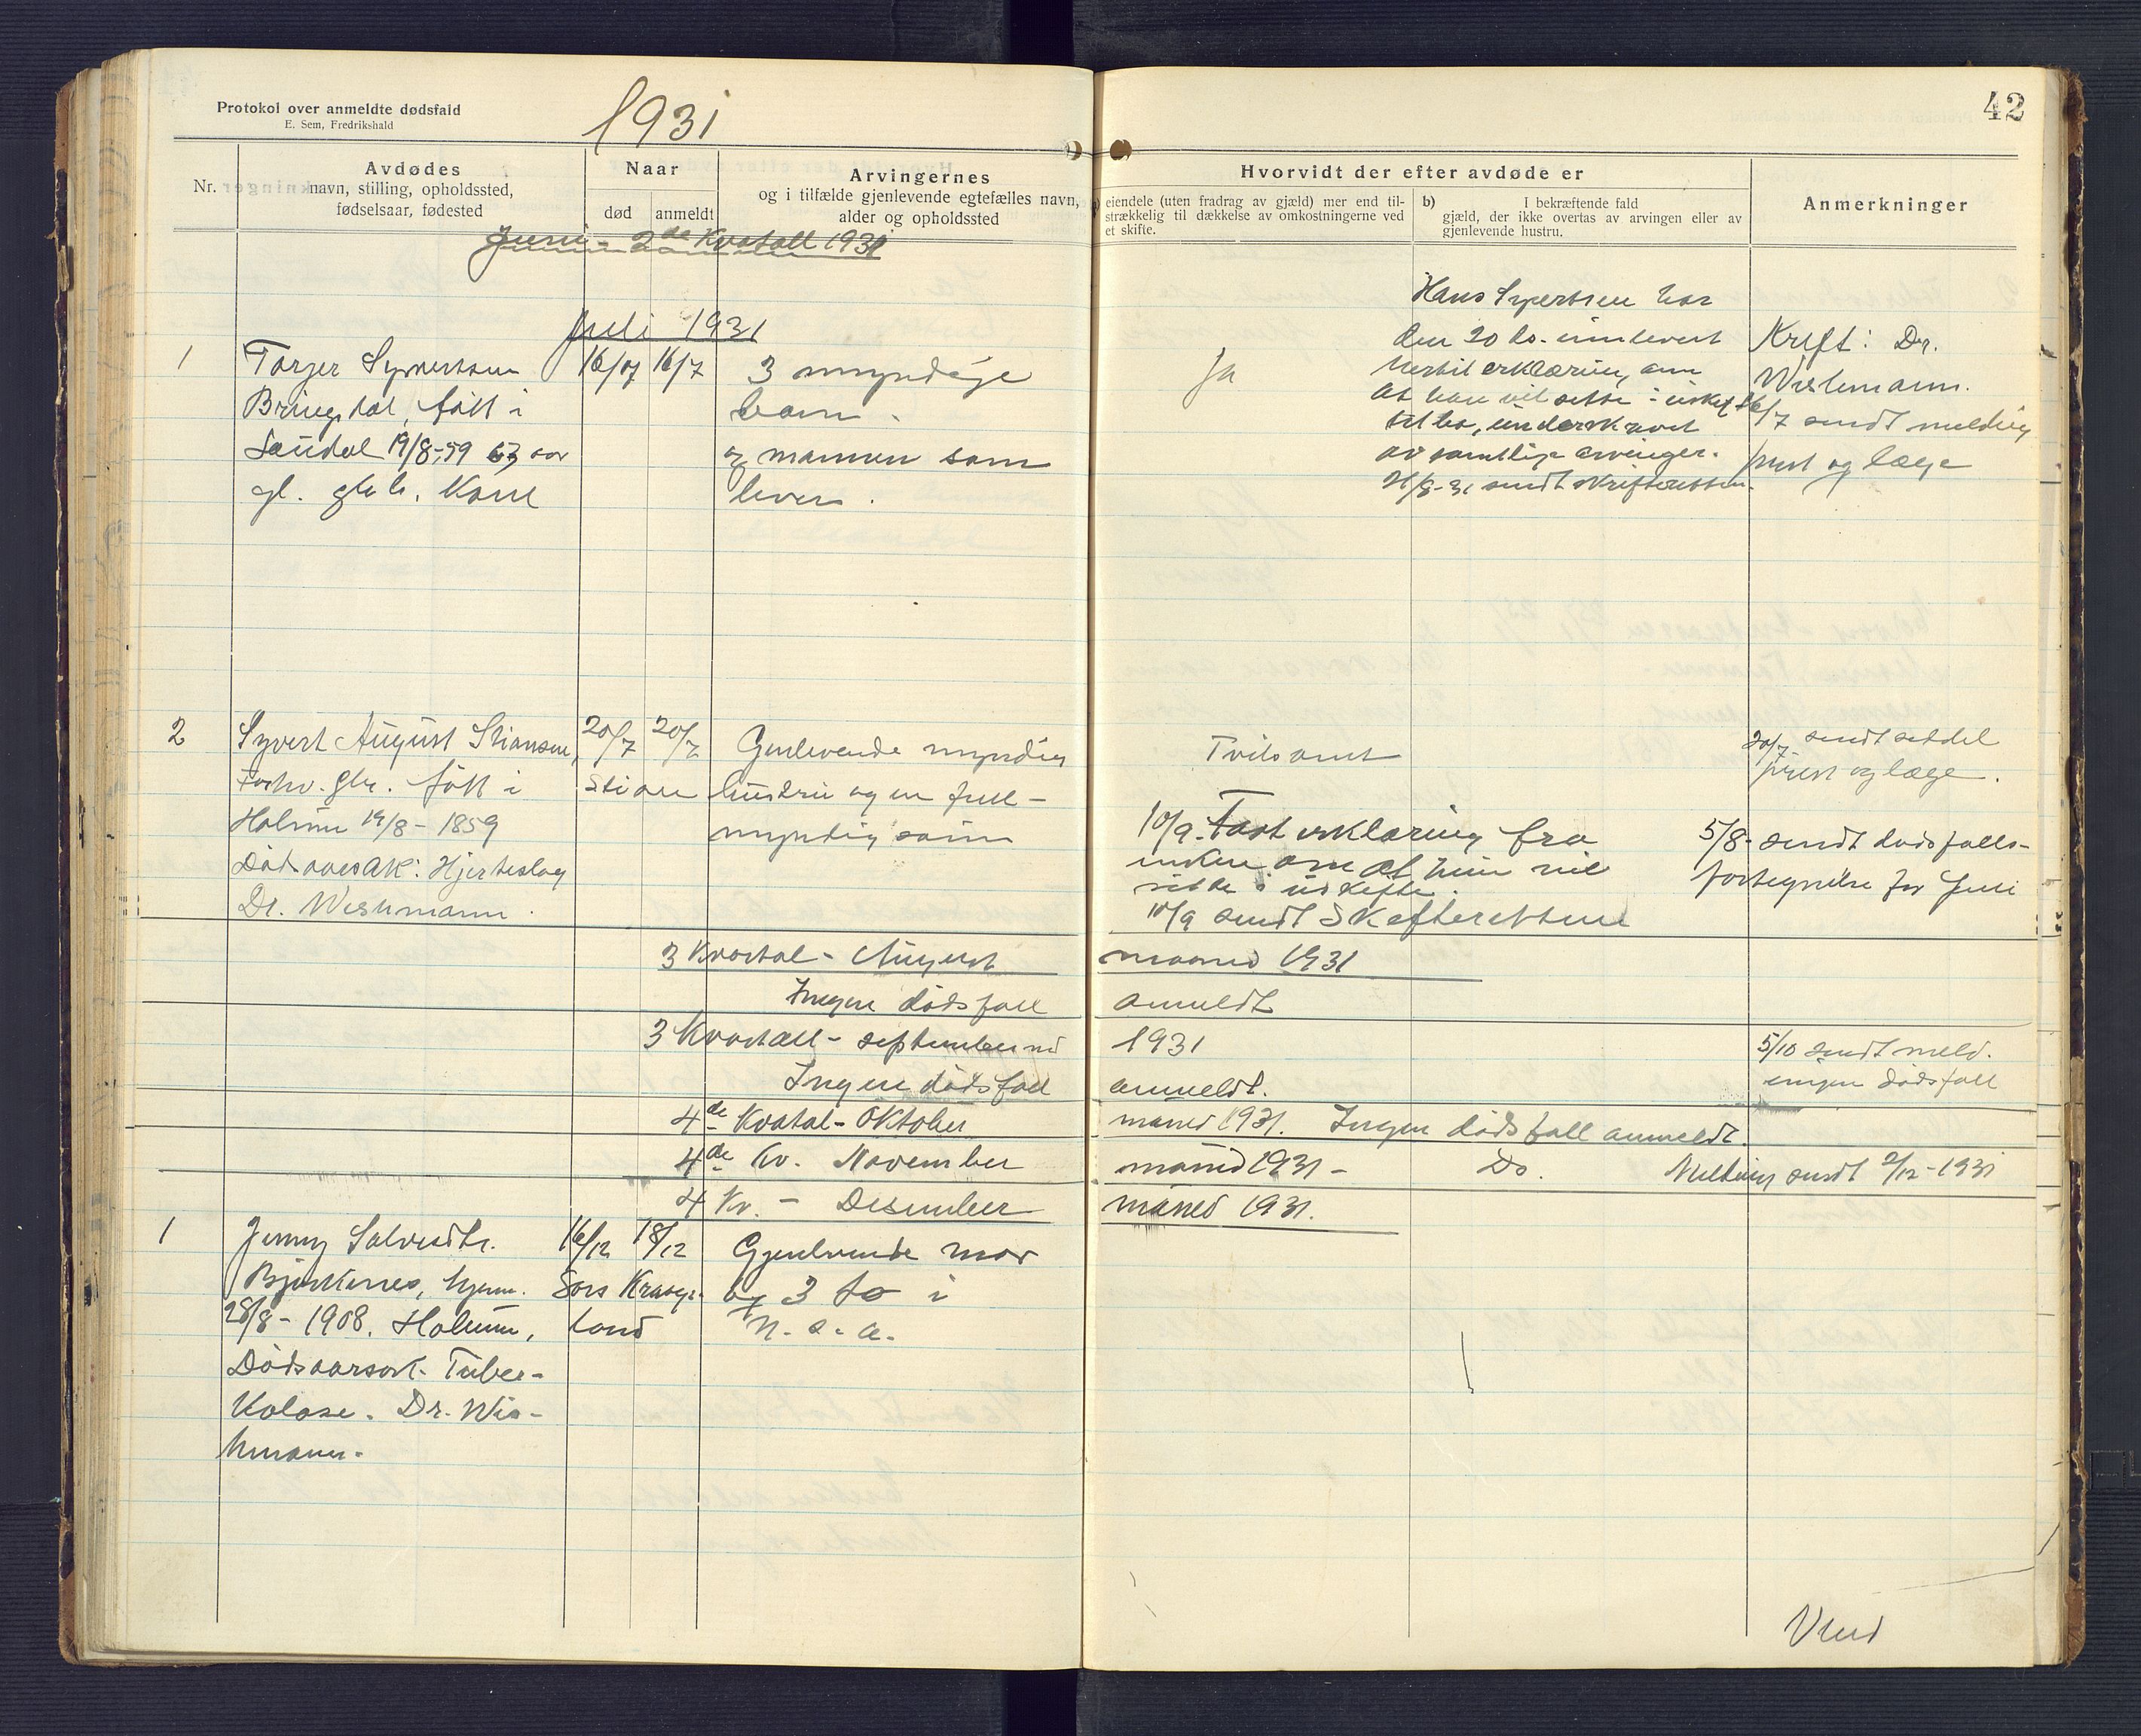 Protokol over anmeldte dødsfald
E. Sem, Fredrikshald
1931
42
Nr.
Avdødes
navn, stilling, opholdssted,
fødselsaar, fødested
Naar
død
anmeldt
Arvingernes
og i tilfælde gjenlevende egtefælles navn,
alder og opholdssted
Hvorvidt der efter avdøde er
eiendele (uten fradrag av gjæld) mer end til-
strækkelig til dækkelse av omkostningerne ved
et skifte.
b) I bekræftende fald
gjæld, der ikke overtas av arvingen eller av
gjenlevende hustru.
Anmerkninger
Juni - 2de Kvatall 1931
Juli 1931
1
Torjer Syvertsen
Bringsdal, født i
Søndal 19/8-59
gl. Kone
16/07
16/7
3 myndige
barn.
og mannen som
lever.
Ja
Hans Syvertsen har
den 20 ds. innlevert
hertil erklæring, om
at han vil sitte i uskif-
tet bo, underskrevet
av samtlige arvinger.
21/8-31 sendt skifteretten.
Kreft: Dr.
Wishmann.
16/7 sendt melding
prest og læge
2
Syvert August Stiansen,
Forhv. gbr. født i
Holum 19/8-1859
Dødsaarsak: Hjerteslag
Dr. Wishmann.
20/7
20/7
Stiane
Genlevende myndig
hustru og en full-
myndig sønn
Tvilsomt
10/9. Fått erklæring fra
enken om at hun vil
sitte i uskifte.
10/9 sendt Skifteretten
20/7- sendt seddel
prest og læge.
5/8- sendt dødsfalls-
fortegnelse for Juli
3 Kvartal - August
maaned 1931
Ingen dødsfall
anmeldt
3 Kvartall - september md
1931
Ingen dødsfall
anmeldt.
5/10 sendt meld.
ingen dødsfall
4de Kvatal - Oktober
måned 1931. Ingen dødsfall anmeldt.
4de Kv. November
måned 1931 - Do. Melding sendt 2/12-1931
4 Kv. - Desember
måned 1931.
1
Jenny Salvesdtr.
Bjørkenes, hjem.
28/8-1908. Holum,
Dødsaarsak. Tuber-
kolose. Dr. Wis-
hmann.
16/12
18/12
Sørs Krage-
land
Gjenlevende mor
og 3 sø i
N. S. A.
Vend